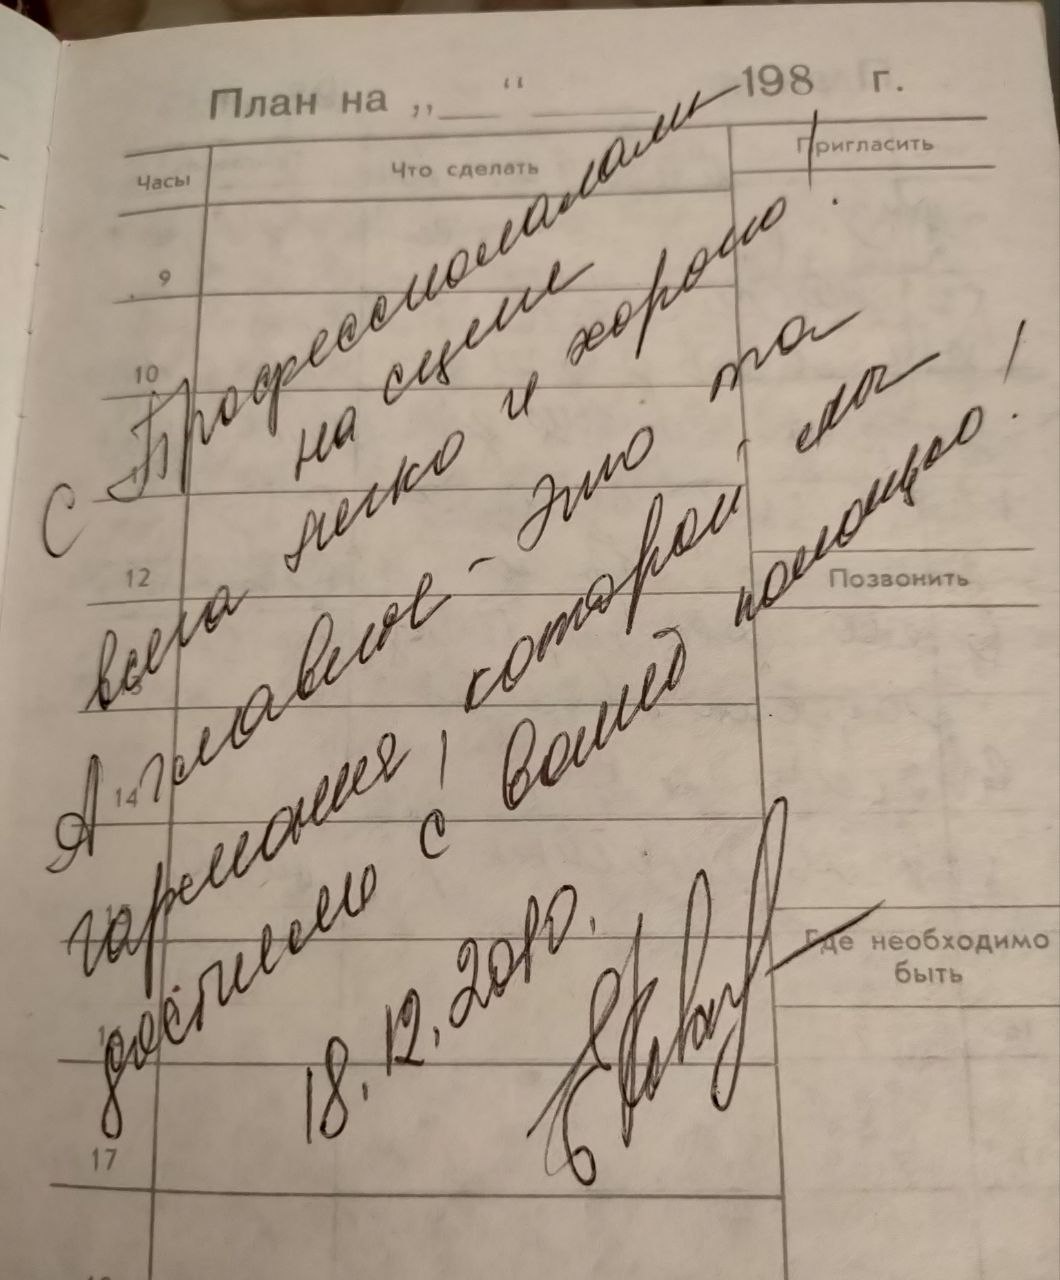 План на „__“ ______ 198 г.
Часы Что сделать Пригласить
9
10
12
14
17
Позвонить
Где необходимо
быть
С Профессионалами
на сцене
всегда легко и хорошо!
А главное - это та
гармония, которой мы
достигнем с вашей помощью!
18.12.2010.